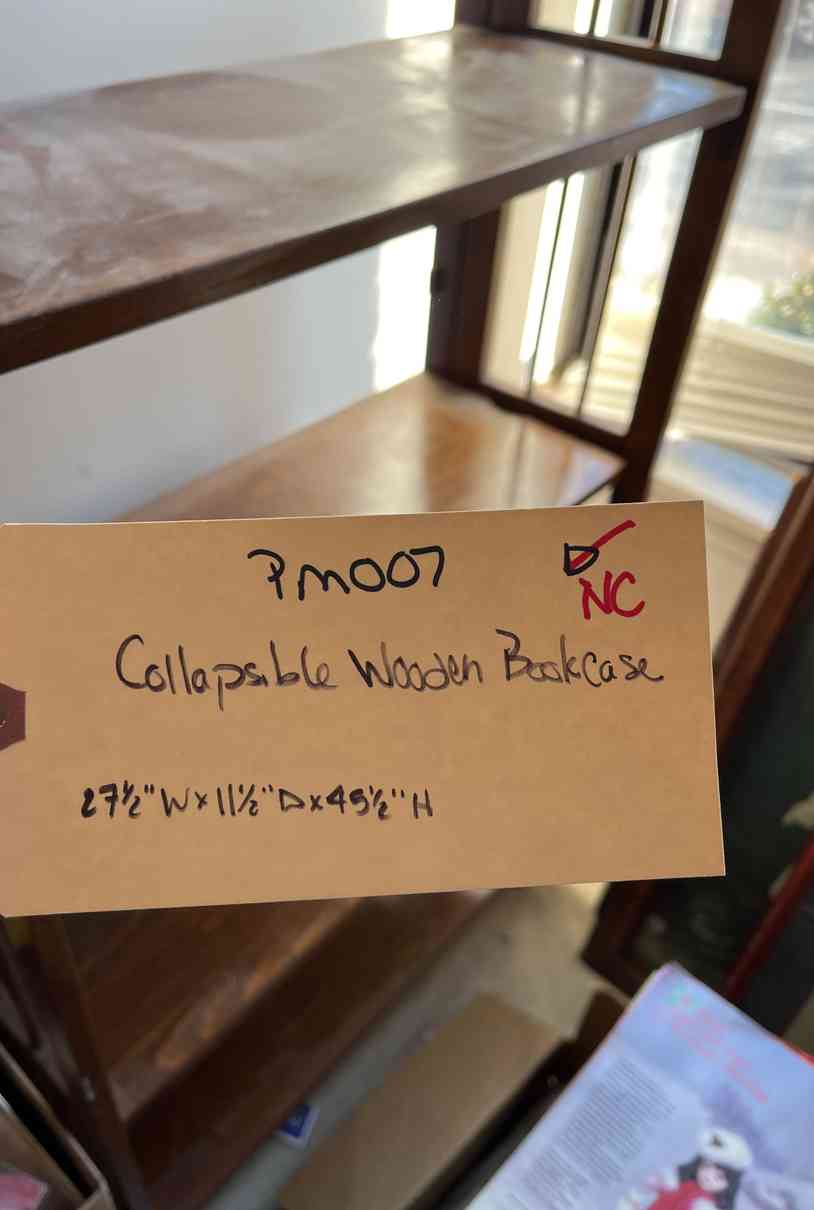 PM007
D
NC
Collapsible Wooden Bookcase
27½" W x 11½" D x 45½" H